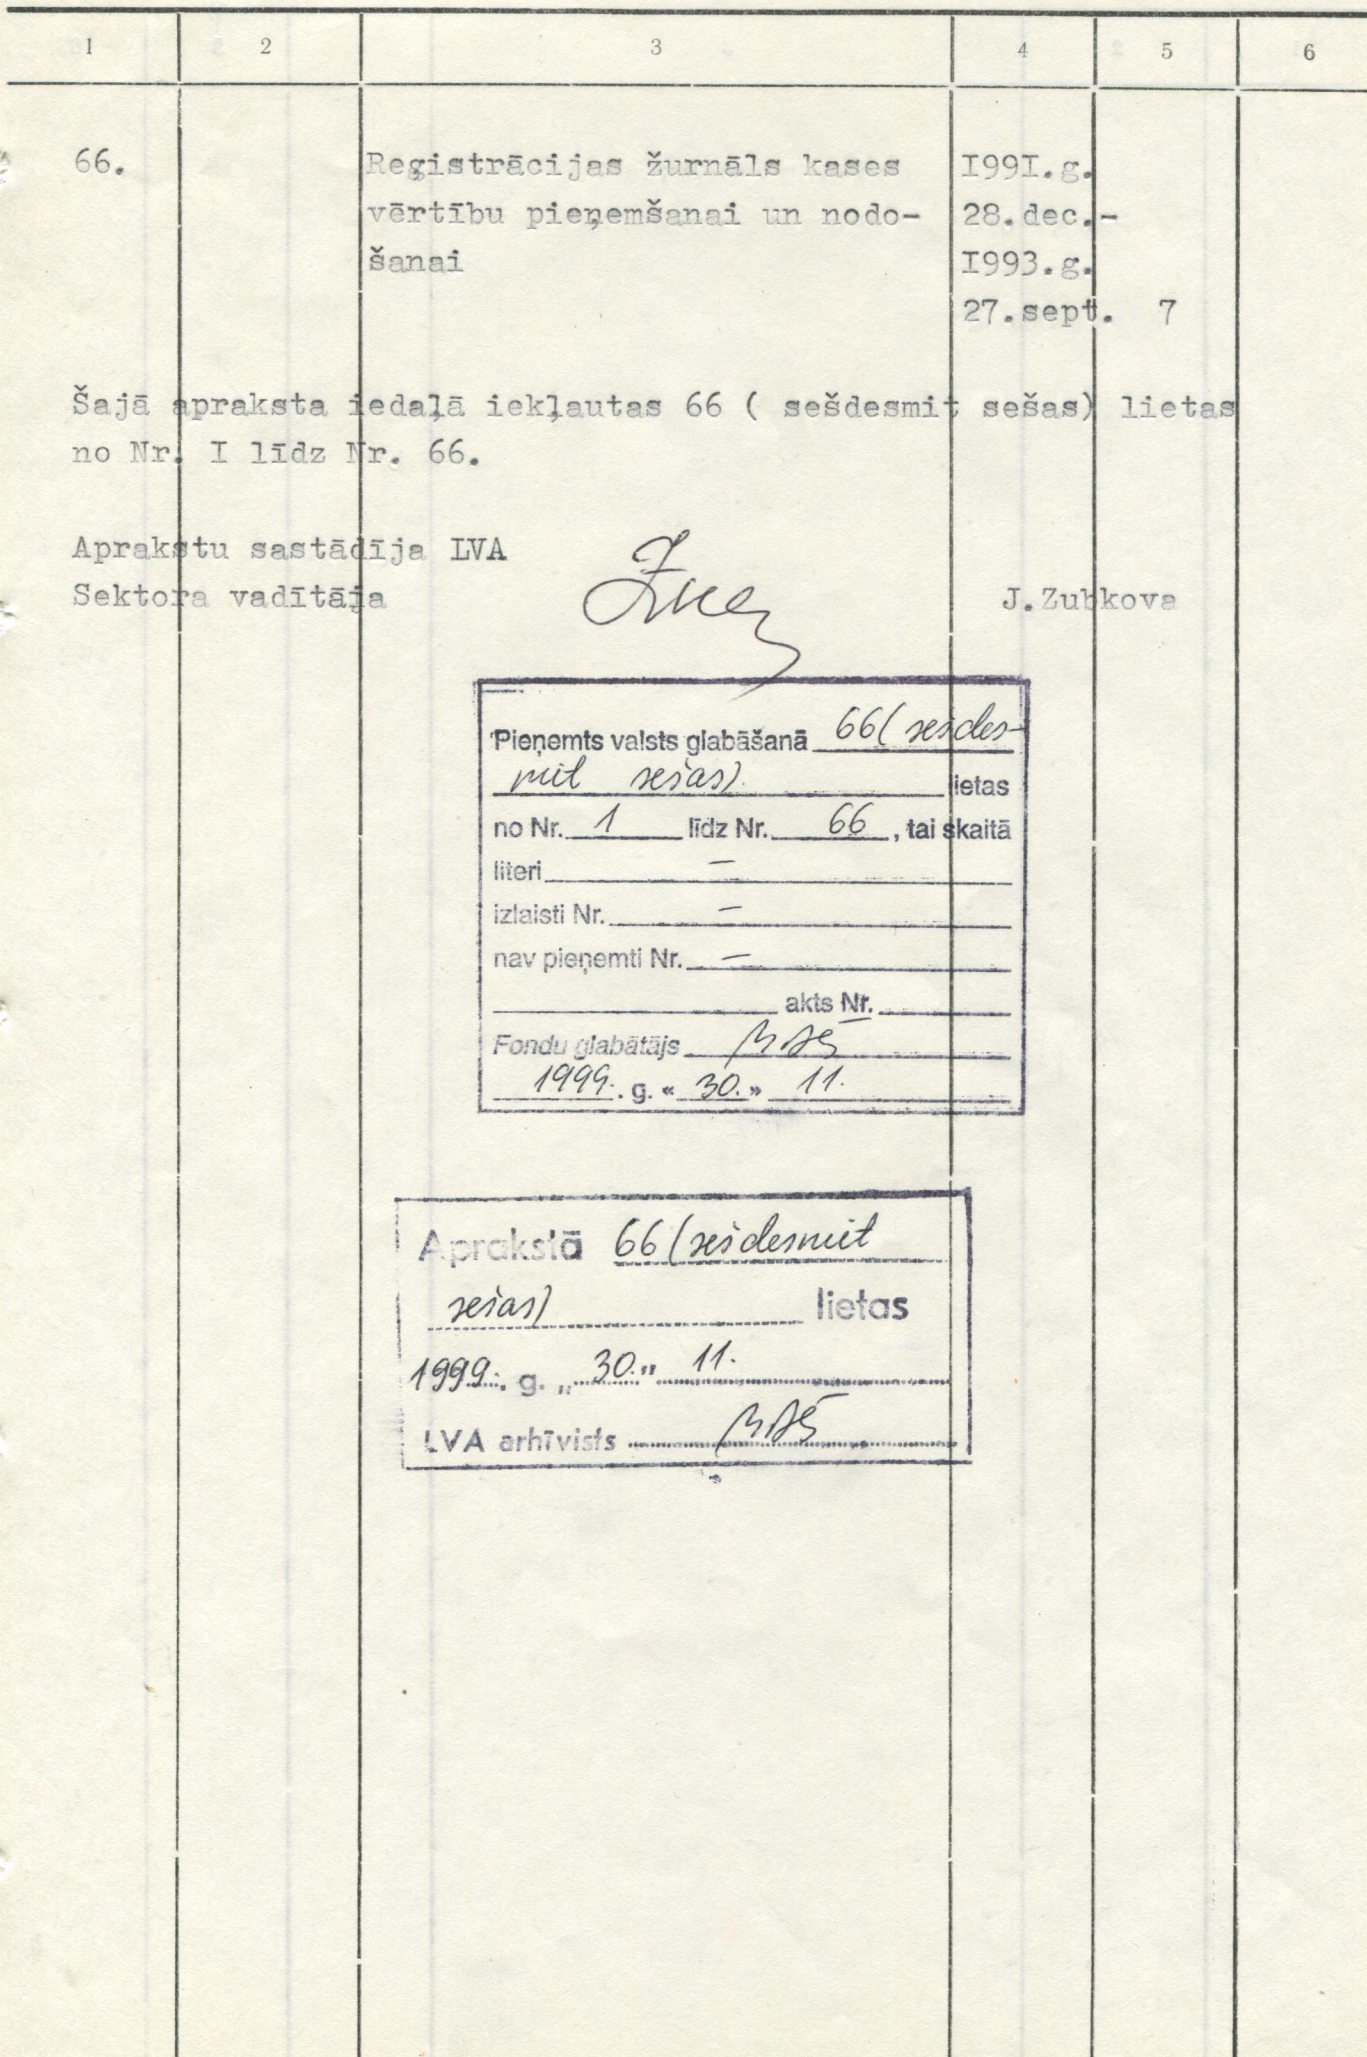 1 2 3 4 5 6
66. Reģistrācijas žurnāls kases I99I.g.
vērtību pieņemšanai un nodo- 28.dec.-
šanai I993.g.
27.sept. 7
Šajā apraksta iedaļā iekļautas 66 ( sešdesmit sešas) lietas
no Nr. I līdz Nr. 66.
Aprakstu sastādīja LVA
Sektora vadītāja J.Zubkova
Pieņemts valsts glabāšanā 66( sešdes-
mit sešas) lietas
no Nr. 1 līdz Nr. 66, tai skaitā
literi –
izlaisti Nr. –
nav pieņemti Nr. –
akts Nr.
Fondu glabātājs
1999. . g. « 30. » 11.
Aprakstā 66 (sešdesmit
sešas) lietas
1999. . g. „ 30. " 11.
LVA arhīvists